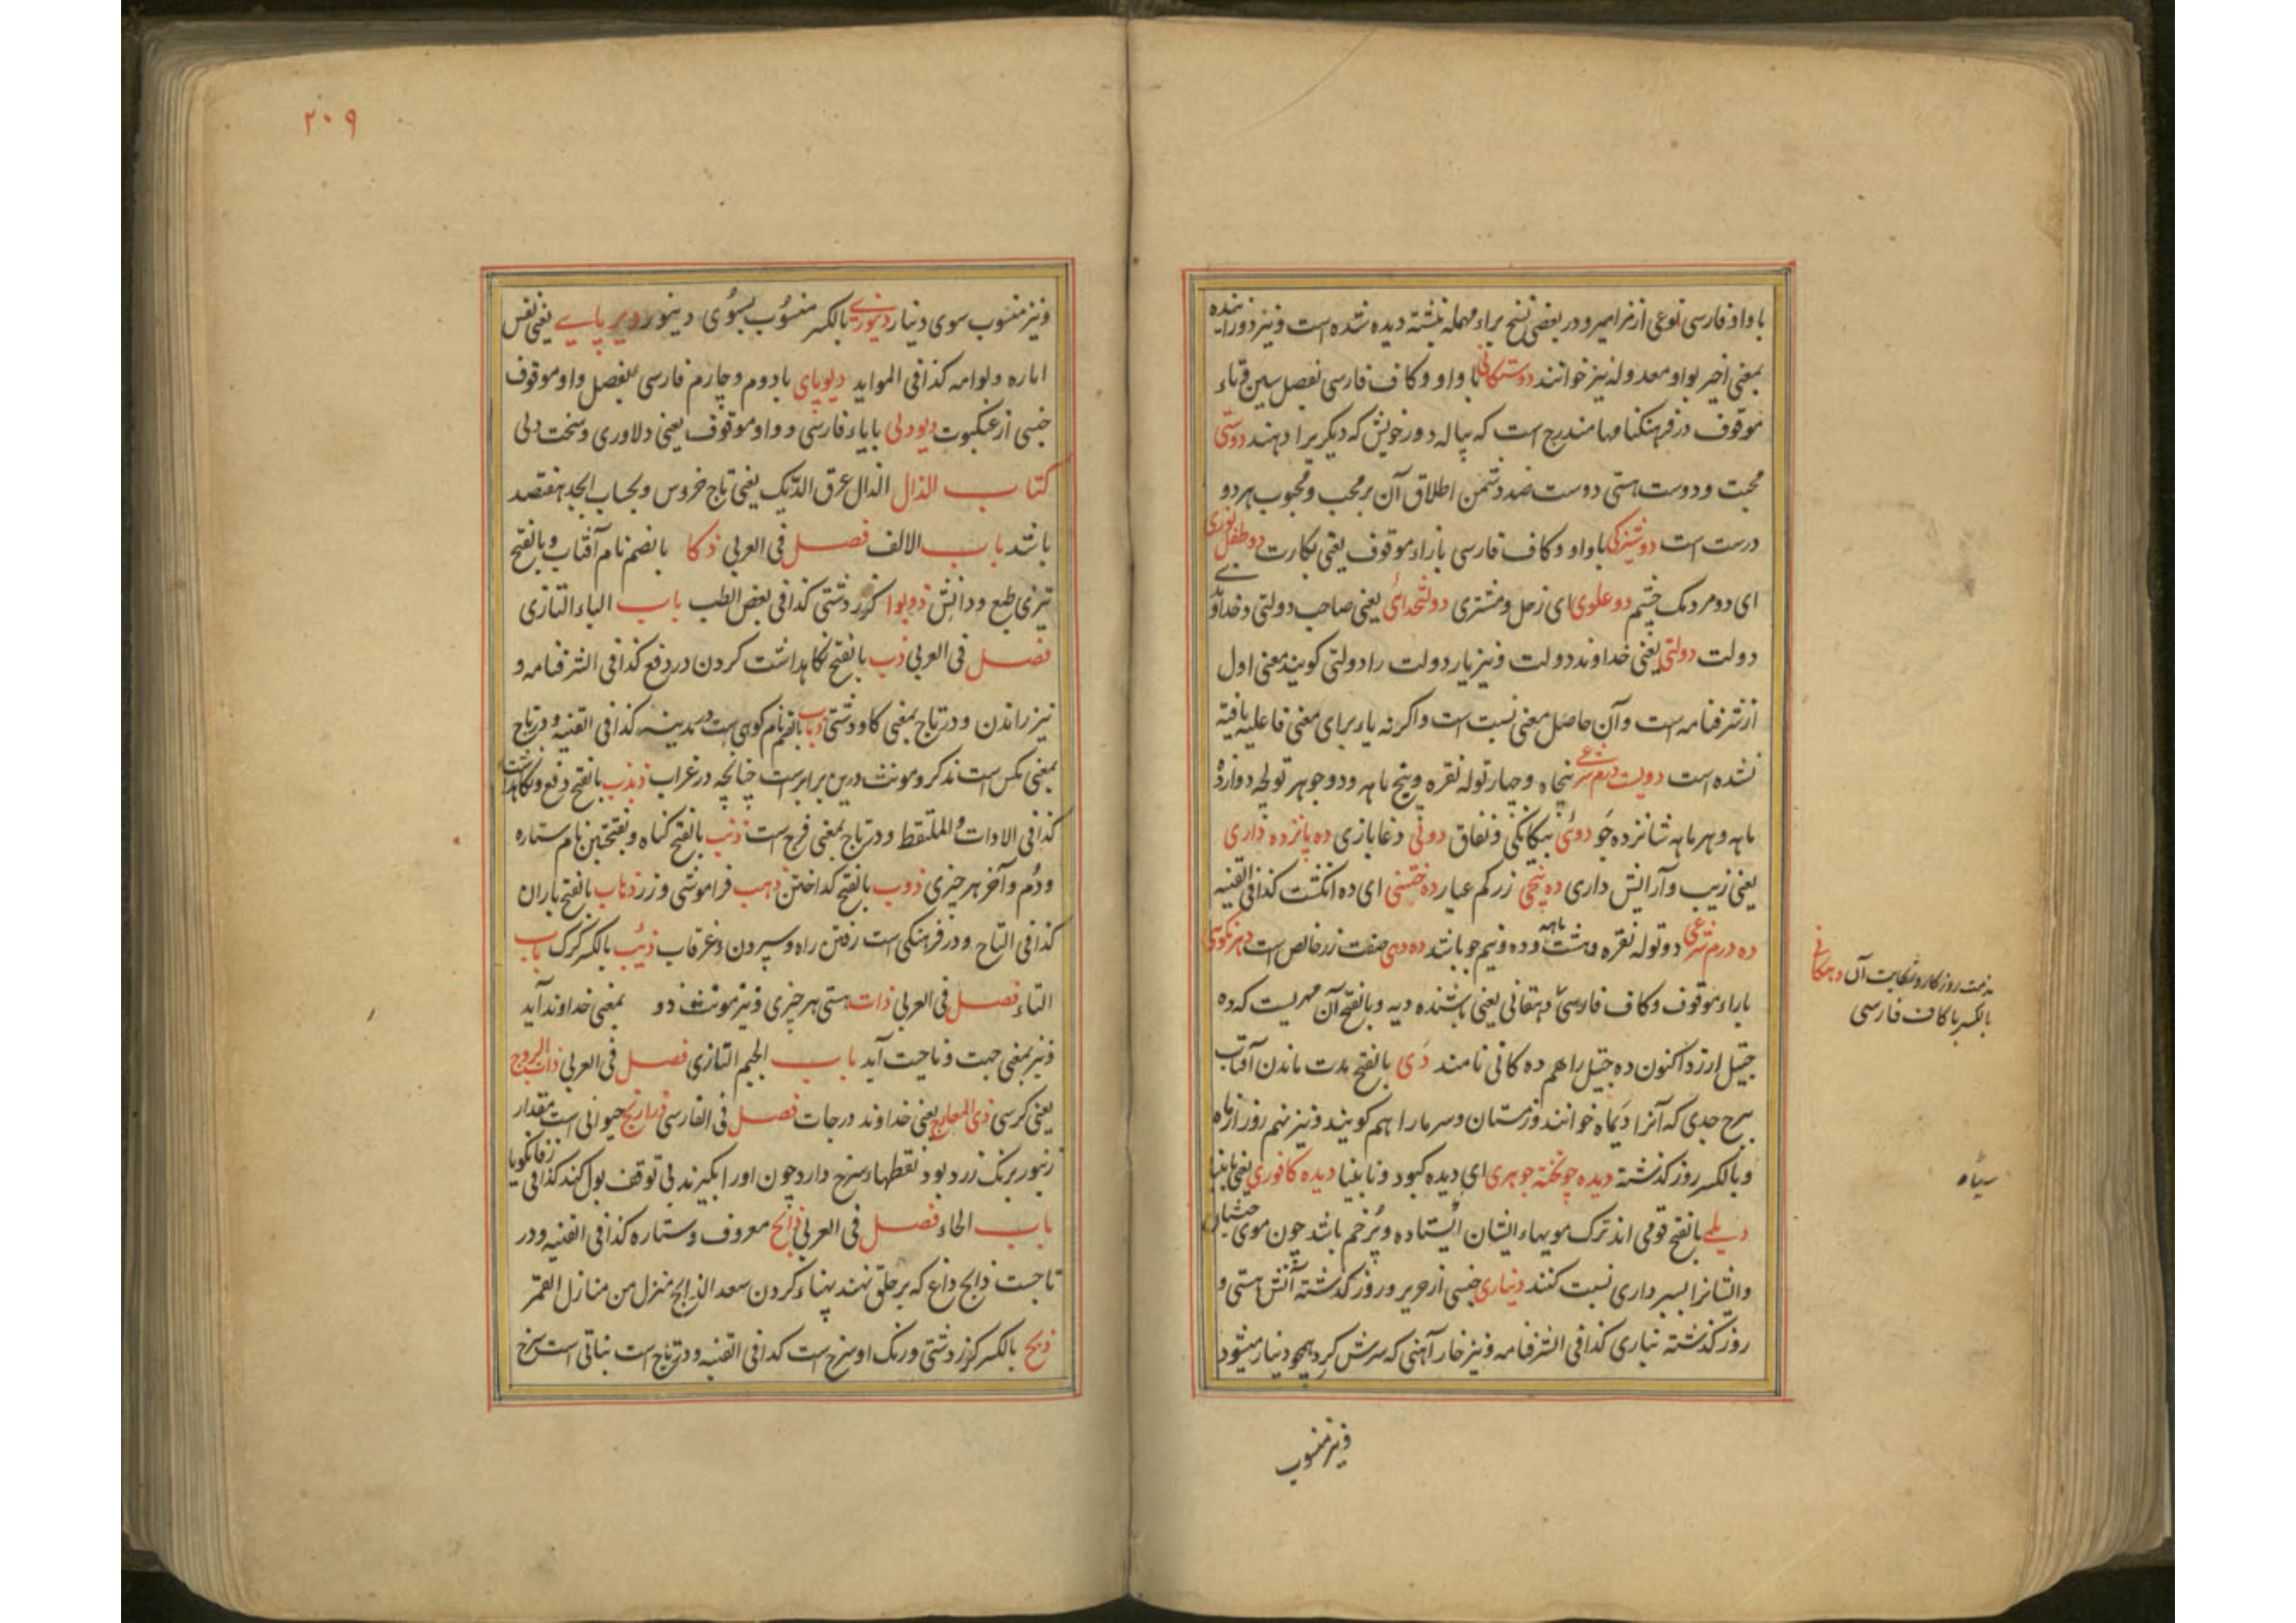 با واو فارسی نوعی از مزامیر و در بعضی نسخ براء مهمله نبشته دیده شده است و نیز دوراینده
بمعنی اخیر بواو معدوله نیز خوانند دوستکانی با واو و کاف فارسی بفصل سین و تاء
موقوف در فرهنکنامها مندرج است که پیاله دور خویش که دیکریرا دهند دوستی
محبت و دوست هستی دوست ضد دشمن اطلاق آن بر محب و محبوب هر دو
درست است دوشیزکی با واو و کاف فارسی بازاء موقوف یعنی بکارت دو طفل نوری
ای دو مردمک چشم دو علوی ای زحل و مشتری دولتخدائی یعنی صاحب دولتی و خداوندی
دولت دولتی یعنی خداوند دولت و نیز یار دولت را دولتی کویند معنی اول
از شرفنامه است و آن حاصل معنی نسبت است و اکرنه یاء برای معنی فاعلیه یافته
نشده است دویست درم شرعی پنجاه و چهار توله نقره و پنج ماهه و دو جوهر توله دوازده
ماهه و هر ماهه شانزده جو دوئی بیکانکی و نفاق دونی دغابازی ده پانزده داری
یعنی زیب و آرایش داری ده پنجی زر کم عیار ده ختنی ای ده انکشت کذا فی القنیه
ده درم شرعی دو توله نقره و هشت ماهه و ده و نیم جو باشد ده دهی صفت زر خالص است
باراء موقوف و کاف فارسی دهقانی یعنی باشنده دیه و بالفتح آن مهریست که ده
جیتل ارزد اکنون ده جیتل را هم ده کانی نامند دی بالفتح مدت ماندن آفتاب
ببرج جدی که آنرا دیماه خوانند و زمستان و سرما را هم کویند و نیز نهم روز از ماه
و بالکسر روز کذشته دیده چونخته جوهری ای دیده کبود و نابینا دیده کافوری یعنی نابینا
دیلمی بالفتح قومی اند ترک مویهاء ایشان ایستاده و پر خم باشد چون موی حبشیان
و ایشانرا بسپرداری نسبت کنند دیناری جنسی از حریر و روز کذشته آتش هستی و
روز کذشته نیاری کذا فی الشرفنامه و نیز خار آهنی که سرش کرد همچو دینار میشود
و نیز منسوب
مذمت روزکار و شکایت آن دهکانی
بالکسر با کاف فارسی
سیاه
۲۰۹
و نیز منسوب سوی دینار دینوری بالکسر منسوب بسوی دینور دیر پایی یعنی نفس
اماره و لوامه کذا فی المواید دیوپای بادوم و چارم فارسی بفصل واو موقوف
جنسی از عنکبوت دیودلی بایاء فارسی و واو موقوف یعنی دلاوری و سخت دلی
کتاب الذال الذال عرق الدیک یعنی تاج خروس و بحساب ابجد هفتصد
باشد باب الالف فصل فی العربی ذکا بالضم نام آفتاب و بالفتح
تیزی طبع و دانش ذوبوا کزر دشتی کذا فی بعض الطب باب الباء التازی
فصل فی العربی ذب بالفتح نکاهداشت کردن در دفع کذا فی الشرفنامه و
نیز راندن و در تاج بمعنی کاو دشتی ذباب بالضم نام کوهی است در مدینه کذا فی القنیه و در تاج
بمعنی مکس است مذکر و مونث درین برابرست چنانچه در غراب ذبذب بالفتح دفع و نکاهداشت
کذا فی الادات و الملتقط و در تاج بمعنی فرج است ذنب بالفتح کناه و بفتحتین نام ستاره
و دم و آخر هر چیزی ذوب بالفتح کداختن ذهب فراموشی و زر ذهاب بالفتح باران
کذا فی التاج و در فرهنکی است رفتن راه و سپردن و غرقاب ذئب بالکسر کرک باب
التاء فصل فی العربی ذات هستی هر چیزی و نیز مونث ذو بمعنی خداوند آید
و نیز بمعنی جهت و ناحیت آید باب الجیم التازی فصل فی العربی ذات البروج
یعنی کرسی ذی المعارج یعنی خداوند درجات فصل فی الفارسی ذراریح حیوانی است مقدار
زنبور برنک زرد بود نقطهاء سرخ دارد چون او را بکیرند بی توقف بول کند کذا فی زفانکویا
باب الحاء فصل فی العربی ذابح معروف و ستاره کذا فی القنیه و در
تاجست ذابح داغ که بر حلق نهند پهناء کردن سعد الذابح منزل من منازل القمر
ذبح بالکسر کزر دشتی و رنک او سرخ است کذا فی القنیه و در تاج است نباتی است سرخ